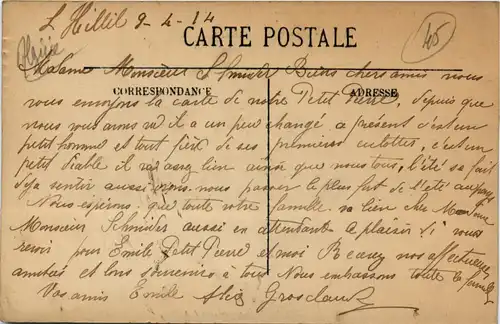 L'Hillil 9-4-14
Algérie
45
CARTE POSTALE
Madame Monsieur Schnider Biens chers amis nous
CORRESPONDANCE ADRESSE
vous envoyons la carte de notre Petit Pierre, depuis que
nous vous avons vu il a un peu changé a présent c'est un
petit homme et tout fier de ses premieres culottes, c'est un
petit diable il va assez bien ainsi que nous tous, l'été se fait
deja sentir aussi nous passer le plus fort de l'été au
Nous espérons que toute votre famille va bien cher Madame
Monsieur Schnider aussi en attendant le plaisir di vous
revoir pour Emile Petit Pierre et moi Recevez nos affectueuses
amitiés et bons souvenirs a tous Nous embrassons toute la famille
Vos amis Emile Alis Grosclaude